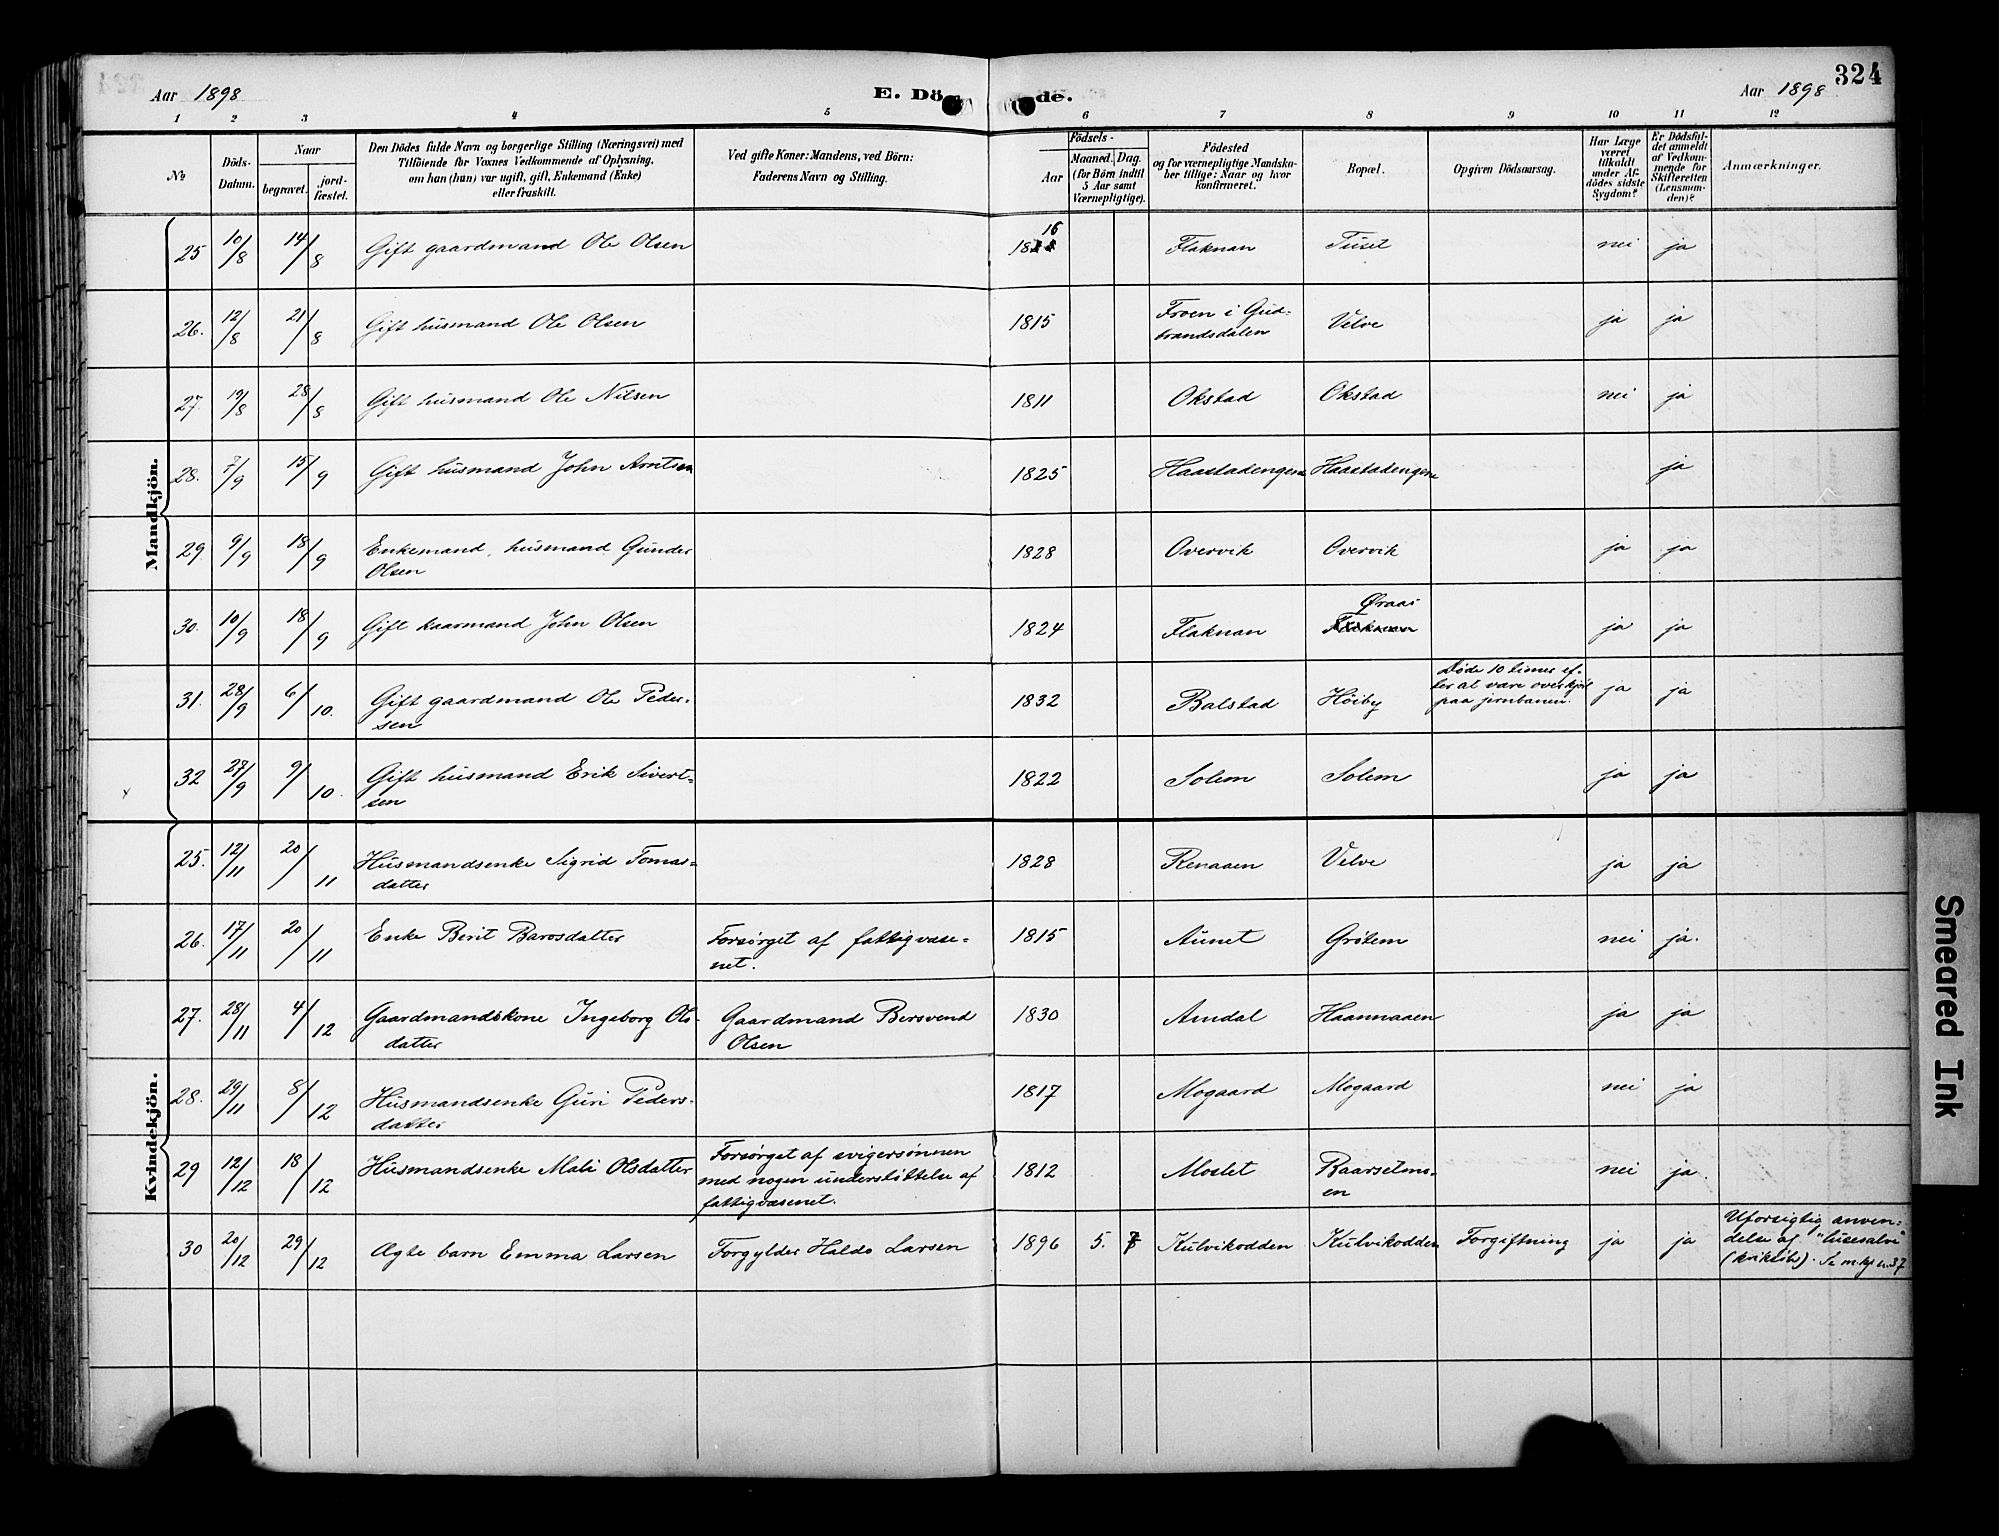 324
Aar 1898
E. Döde.
Aar 1898
1 2 3 4 5 6 7 8 9 10 11 12
No
Döds-
Datum.
Naar
begravet.
jord-
fæstet.
Den Dödes fulde Navn og borgerlige Stilling (Næringsvei) med
Tilföiende for Voxnes Vedkommende af Oplysning,
om han (hun) var ugift, gift, Enkemand (Enke)
eller fraskilt.
Ved gifte Koner: Mandens, ved Börn:
Faderens Navn og Stilling.
Födsels-
Aar
Maaned. Dag.
(for Börn indtil
5 Aar samt
Værnepligtige).
Födested
og for værnepligtige Mandska-
ber tillige: Naar og hvor
konfirmeret.
Bopæl.
Opgiven Dödsaarsag.
Har Læge
været
tilkaldt
under Af-
dödes sidste
Sygdom?
Er Dödsfal-
det anmeldt
af Vedkom-
mende for
Skifteretten
(Lensman-
den)?
Anmærkninger.
Mandkjön.
25 10/8 14/8 Gift gaardmand Ole Olsen 1816 Flaknan Tuset nei ja
26. 12/8 21/8 Gift husmand Ole Olsen 1815 Froen i Gud-
brandsdalen Velve ja ja
27 19/8 28/8 Gift husmand Ole Nilsen 1811 Okstad Okstad nei ja
28. 7/9 15/9 Gift husmand John Arntsen 1825 Haastadengene Haastadengene ja
29 9/9 18/9 Enkemand, husmand Gunder
Olsen 1828 Overvik Overvik ja ja
30. 10/9 18/9 Gift kaarmand John Olsen 1824 Flaknan Øraas
Flaknan ja ja
31. 28/9 6/10. Gift gaardmand Ole Peder-
sen 1832 Balstad Höiby Døde 10 timer ef-
ter at være overkjørt
paa jernbanen. ja ja
32 27/9 9/10. Gift husmand Erik Sivert-
sen 1822 Solem Solem ja ja
Kvindekjön.
25. 12/11 20/11 Husmandsenke Sigrid Tomas-
datter 1828 Renaaen Velve ja ja
26. 17/11 20/11 Enke Berit Barosdatter Forsørget af fattigvæse-
net. 1815 Aunet Grötem nei ja.
27. 28/11 4/12 Gaardmandskone Ingeborg Ols-
datter Gaardmand Bersvend
Olsen 1830 Amdal Haannaaen ja ja
28. 29/11 8/12 Husmandsenke Guri Peders-
datter 1817 Mogaard Mogaard nei ja
29 12/12 18/12 Husmandsenke Mali Olsdatter Forsørget af svigersönnen
med nogen understöttelse af
fattigvæsenet. 1812 Moslet Baarsetmo-
en nei ja.
30 20/12 29/12 Ægte barn Emma Larsen Forgylder Haldo Larsen 1896 5. 7 Kulvikodden Kulvikodden Forgiftning ja ja Uforsigtig anven-
delse af "lusesalve"
(kviksölv). Se m.kj. n.37
Smeared Ink